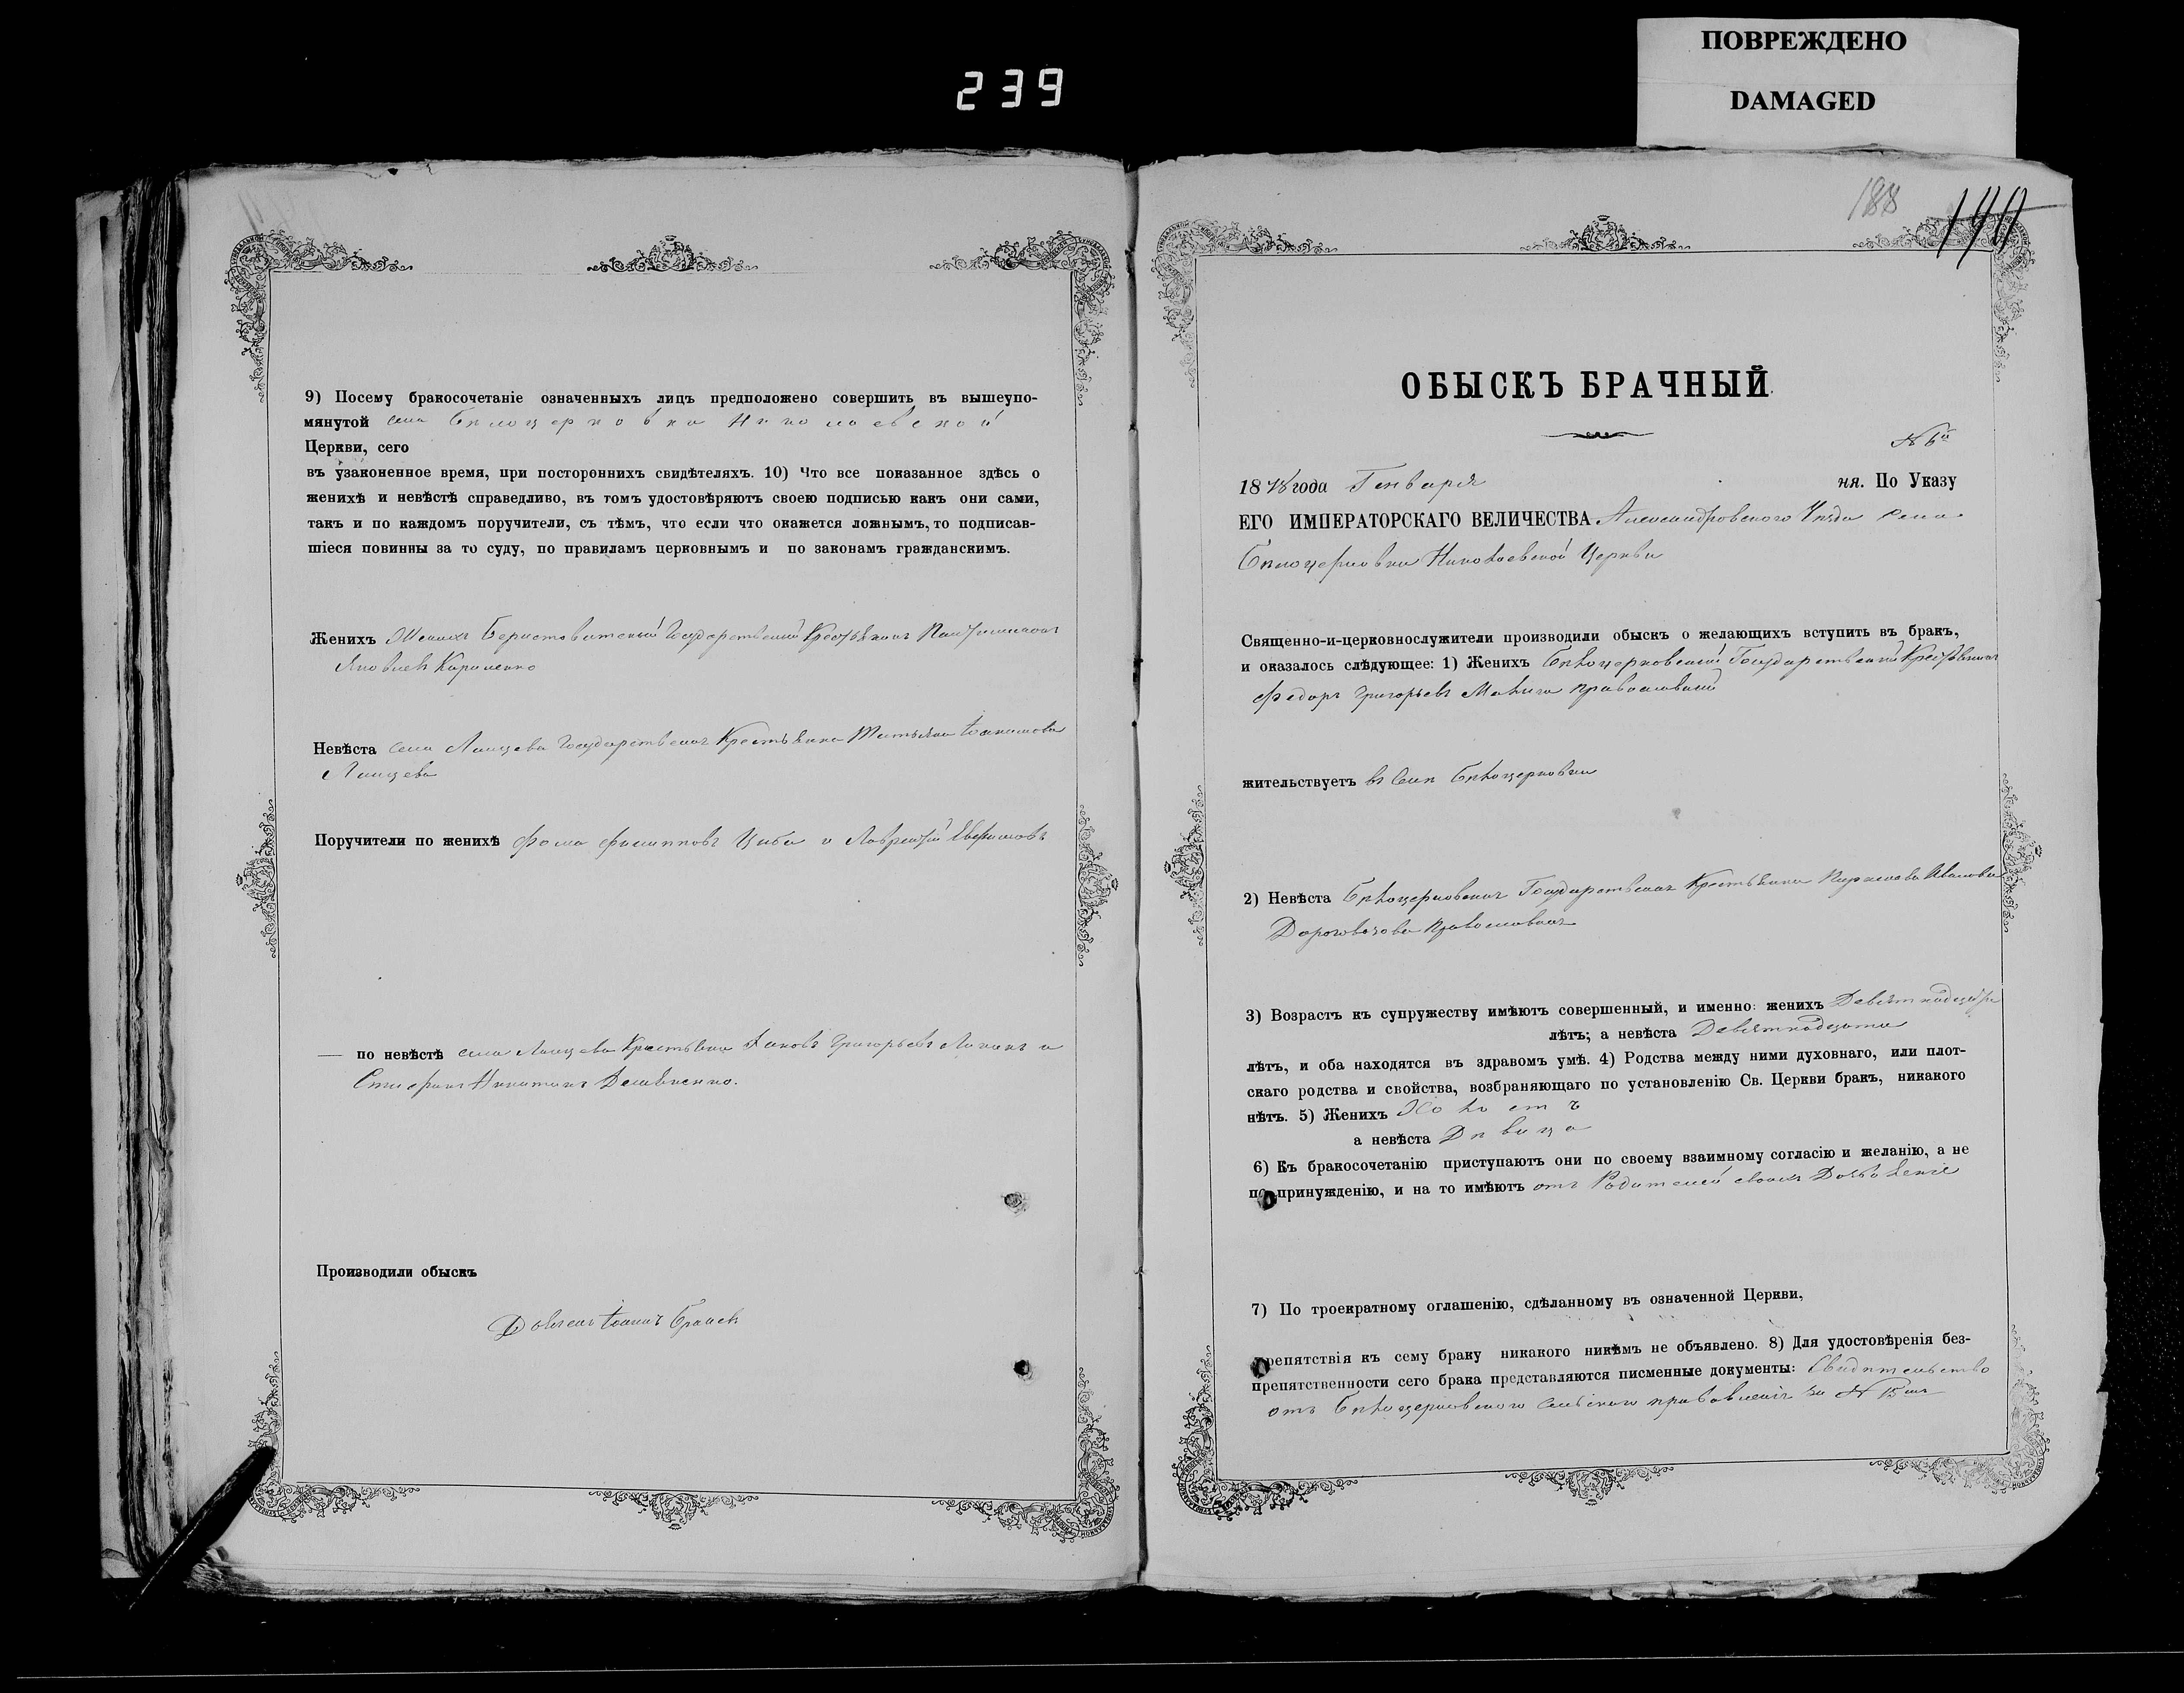 ПОВРЕЖДЕНО
DAMAGED
239
9) Посему бракосочетаніе означенныхъ лицъ предположено совершить въ вышеупо-
мянутой села Бѣлоцерковки Николаевской
Церкви, сего
въ узаконенное время, при постороннихъ свидѣтеляхъ. 10) Что все показанное здѣсь о
женихѣ и невѣстѣ справедливо, въ томъ удостовѣряютъ своею подписью какъ они сами,
такъ и по каждомъ поручители, съ тѣмъ, что если что окажется ложнымъ, то подписав-
шіеся повинны за то суду, по правиламъ церковнымъ и по законамъ гражданскимъ.
Женихъ Женихъ Государственный Крестьянинъ
Яковлевъ
Невѣста села Государственная Крестьянка Татьяна
Поручители по женихѣ Фома Филипповъ Циба и Лаврентій
— по невѣстѣ села Крестьяне Яковъ Григорьевъ и
Никитинъ
Производили обыскъ
188 190
ОБЫСКЪ БРАЧНЫЙ.
№ 6й
1878 года Генваря ня. По Указу
ЕГО ИМПЕРАТОРСКАГО ВЕЛИЧЕСТВА Александровского Уѣзда села
Бѣлоцерковки Николаевской Церкви
Священно-и-церковнослужители производили обыскъ о желающихъ вступить въ бракъ,
и оказалось слѣдующее: 1) Женихъ Бѣлоцерковский Государственный Крестьянинъ
Федоръ Григорьевъ православный
жительствуетъ въ Селѣ Бѣлоцерковки
2) Невѣста Бѣлоцерковская Государственная Крестьянка Иванова
православная
3) Возрастъ къ супружеству имѣютъ совершенный, и именно: женихъ Девятнадцати
лѣтъ; а невѣста Девятнадцати
лѣтъ, и оба находятся въ здравомъ умѣ. 4) Родства между ними духовнаго, или плот-
скаго родства и свойства, возбраняющаго по установленію Св. Церкви бракъ, никакого
нѣтъ. 5) Женихъ Холостъ
а невѣста Дѣвица
6) Къ бракосочетанію приступаютъ они по своему взаимному согласію и желанію, а не
по принужденію, и на то имѣютъ отъ Родителей своихъ Дозволеніе
7) По троекратному оглашенію, сдѣланному въ означенной Церкви,
препятствія къ сему браку никакого никѣмъ не объявлено. 8) Для удостовѣренія без-
препятственности сего брака представляются писменные документы: Свидѣтельство
отъ Бѣлоцерковского сельского правленія за № 15мъ